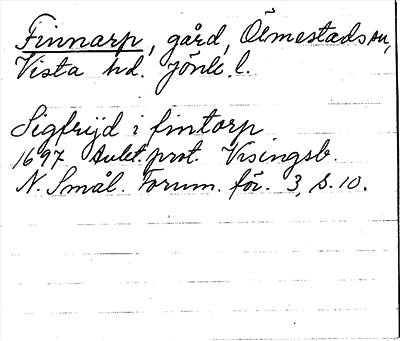 Finnarp, gård, Ölmestads sn,
Vista hd. Jönk. l.
Sigfrijd i fintorp
1697 Avlet. prot. Visingsb.
N. Smål. Fornm. för. 3, s. 10.